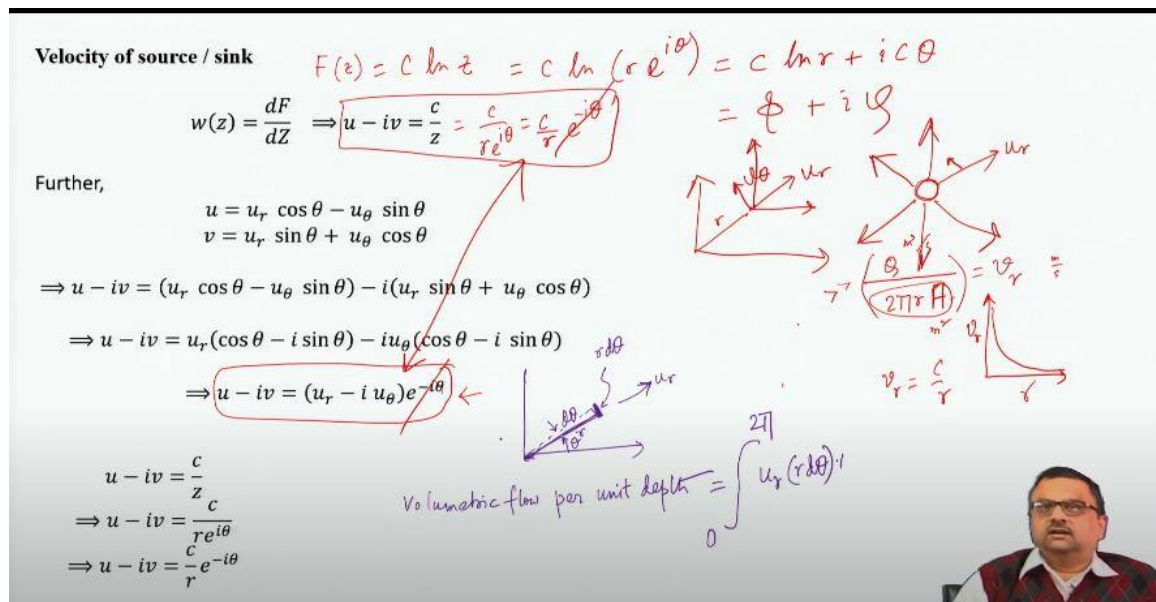 Velocity of source / sink
F(z) = c ln z = c ln (r e^{iθ}) = c ln r + i c θ
= ϕ + i φ
w(z) = dF/dZ ⟹ u − iv = c/z = c/(re^{iθ}) = c/r e^{-iθ}
Further,
u = u_r cos θ − u_θ sin θ
v = u_r sin θ + u_θ cos θ
⟹ u − iv = (u_r cos θ − u_θ sin θ) − i(u_r sin θ + u_θ cos θ)
⟹ u − iv = u_r(cos θ − i sin θ) − iu_θ(cos θ − i sin θ)
⟹ u − iv = (u_r − i u_θ)e^{-iθ}
u − iv = c/z
⟹ u − iv = c/(re^{iθ})
⟹ u − iv = c/r e^{-iθ}
uθ
u_r
r
u_r
m³/s
(Q/(2πr H)) = v_r m/s
m²
v_r
r
v_r = c/r
rdθ
u_r
dθ
r
θ
Volumetric flow per unit depth = ∫_0^{2π} u_r (r dθ)·1